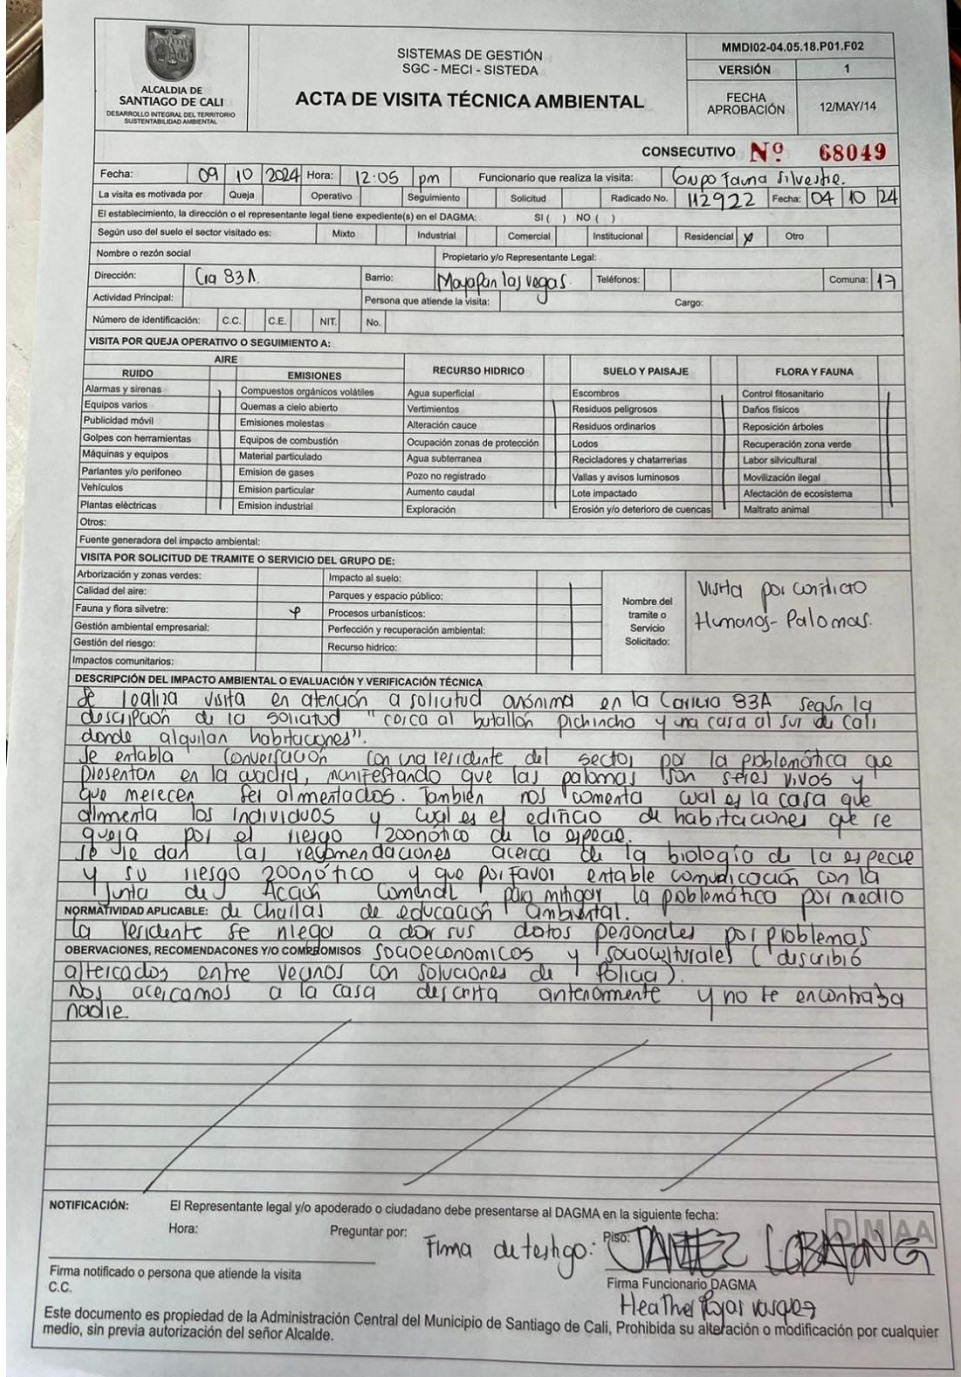 ALCALDIA DE
SANTIAGO DE CALI
DESARROLLO INTEGRAL DEL TERRITORIO
SUSTENTABILIDAD AMBIENTAL
SISTEMAS DE GESTIÓN
SGC - MECI - SISTEDA
ACTA DE VISITA TÉCNICA AMBIENTAL
MMDI02-04.05.18.P01.F02
VERSIÓN 1
FECHA APROBACIÓN 12/MAY/14
CONSECUTIVO Nº 68049
Fecha: 09 10 2024 Hora: 12:05 pm Funcionario que realiza la visita: Grupo Fauna Silvestre.
La visita es motivada por Queja Operativo Seguimiento Solicitud Radicado No. 112922 Fecha: 04 10 24
El establecimiento, la dirección o el representante legal tiene expediente(s) en el DAGMA: SI ( ) NO ( )
Según uso del suelo el sector visitado es: Mixto Industrial Comercial Institucional Residencial x Otro
Nombre o rezón social Propietario y/o Representante Legal:
Dirección: Cra 83A. Barrio: Mayapan las vegas. Teléfonos: Comuna: 17
Actividad Principal: Persona que atiende la visita: Cargo:
Número de identificación: C.C. C.E. NIT. No.
VISITA POR QUEJA OPERATIVO O SEGUIMIENTO A:
AIRE
RUIDO EMISIONES RECURSO HIDRICO SUELO Y PAISAJE FLORA Y FAUNA
Alarmas y sirenas Compuestos orgánicos volátiles Agua superficial Escombros Control fitosanitario
Equipos varios Quemas a cielo abierto Vertimientos Residuos peligrosos Daños físicos
Publicidad móvil Emisiones molestas Alteración cauce Residuos ordinarios Reposición árboles
Golpes con herramientas Equipos de combustión Ocupación zonas de protección Lodos Recuperación zona verde
Máquinas y equipos Material particulado Agua subterranea Recicladores y chatarrerias Labor silvicultural
Parlantes y/o perifoneo Emision de gases Pozo no registrado Vallas y avisos luminosos Movilización ilegal
Vehículos Emision particular Aumento caudal Lote impactado Afectación de ecosistema
Plantas eléctricas Emision industrial Exploración Erosión y/o deterioro de cuencas Maltrato animal
Otros:
Fuente generadora del impacto ambiental:
VISITA POR SOLICITUD DE TRAMITE O SERVICIO DEL GRUPO DE:
Arborización y zonas verdes: Impacto al suelo:
Calidad del aire: Parques y espacio público:
Fauna y flora silvetre: x Procesos urbanísticos:
Gestión ambiental empresarial: Perfección y recuperación ambiental:
Gestión del riesgo: Recurso hidrico:
Impactos comunitarios:
Nombre del tramite o Servicio Solicitado:
Visita por conflicto
Humanos- Palomas.
DESCRIPCIÓN DEL IMPACTO AMBIENTAL O EVALUACIÓN Y VERIFICACIÓN TÉCNICA
Se realiza visita en atención a solicitud anónima en la Carrera 83A según la
descripción de la solicitud "cerca al batallón pichincho y una casa al sur de Cali
donde alquilan habitaciones".
Se entabla conversación con una residente del sector por la problemática que
presentan en la cuadra, manifestando que las palomas son seres vivos y
que merecen ser alimentados. También nos comenta cual es la casa que
alimenta los individuos y cual es el edificio de habitaciones que se
queja por el riesgo zoonótico de la especie.
se le dan las recomendaciones acerca de la biología de la especie
y su riesgo zoonótico y que por favor entable comunicación con la
Junta de Acción Comunal para mitigar la problemática por medio
NORMATIVIDAD APLICABLE: de charlas de educación ambiental.
la residente se niega a dar sus datos personales por problemas
OBERVACIONES, RECOMENDACONES Y/O COMPROMISOS socioeconomicos y socioculturales (describió
altercados entre vecinos con soluciones de Policía).
Nos acercamos a la casa descrita anteriormente y no se encontraba
nadie.
NOTIFICACIÓN: El Representante legal y/o apoderado o ciudadano debe presentarse al DAGMA en la siguiente fecha:
Hora: Preguntar por: Piso:
Firma de testigo:
Firma notificado o persona que atiende la visita
C.C.
Firma Funcionario DAGMA
Heather Rojas Vasquez
Este documento es propiedad de la Administración Central del Municipio de Santiago de Cali, Prohibida su alteración o modificación por cualquier
medio, sin previa autorización del señor Alcalde.